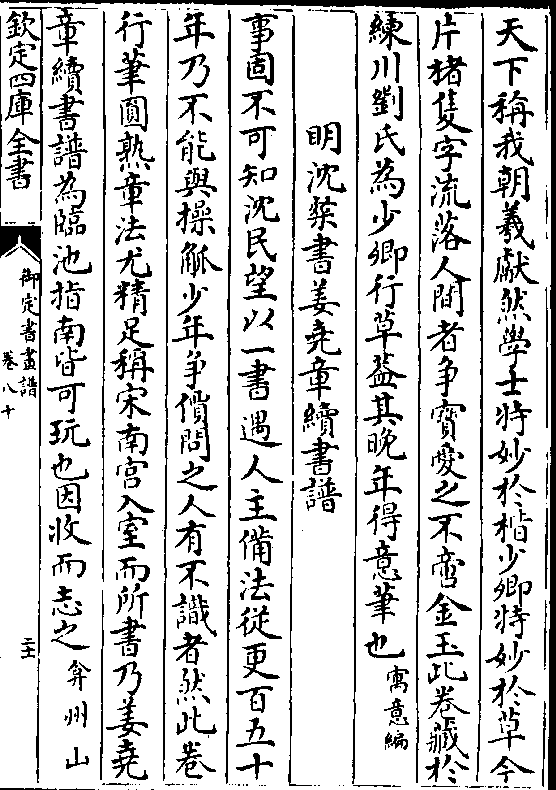 天下稱我朝羲獻然學士特妙於楷少卿特妙於草今
片楮隻字流落人間者争寳愛之不啻金玉此卷藏於
練川劉氏為少卿行草葢其晚年得意筆也寓意編
明沈粲書姜堯章續書譜
事固不可知沈民望以一書遇人主備法從更百五十
年乃不能與操觚少年争價問之人有不識者然此卷
行筆圓熟章法尤精足稱宋南宫入室而所書乃姜堯
章續書譜為臨池指南皆可玩也因收而志之弇州山
欽定四庫全書
御定書畫譜
卷八十
二十五